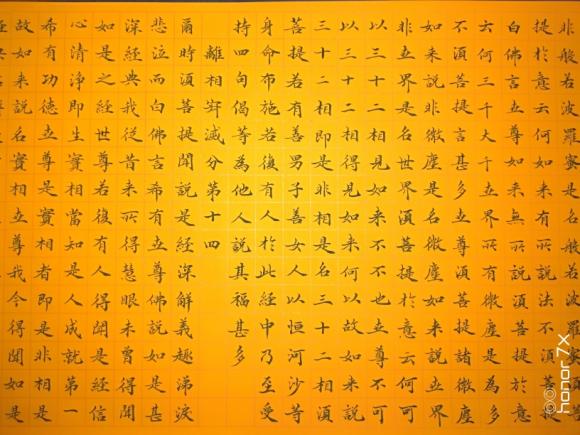 非般若波羅蜜是名般若波羅蜜須菩
提於意云何如來有所說法不須菩提
白佛言世尊如來無所說須菩提於意
云何三千大千世界所有微塵是為多
不須菩提言甚多世尊須菩提諸微塵
如來說非微塵是名微塵如來說世界
非世界是名世界須菩提於意云何可
以三十二相見如來不不也世尊不可
以三十二相得見如來何以故如來說
三十二相即是非相是名三十二相須
菩提若有善男子善女人以恒河沙等
身命布施若復有人於此經中乃至受
持四句偈等為他人說其福甚多
離相寂滅分第十四
爾時須菩提聞說是經深解義趣涕淚
悲泣而白佛言希有世尊佛說如是甚
深經典我從昔來所得慧眼未曾得聞
如是之經世尊若復有人得聞是經信
心清淨即生實相當知是人成就第一
希有功德世尊是實相者即是非相是
故如來說名實相世尊我今得聞如是
honor 7x